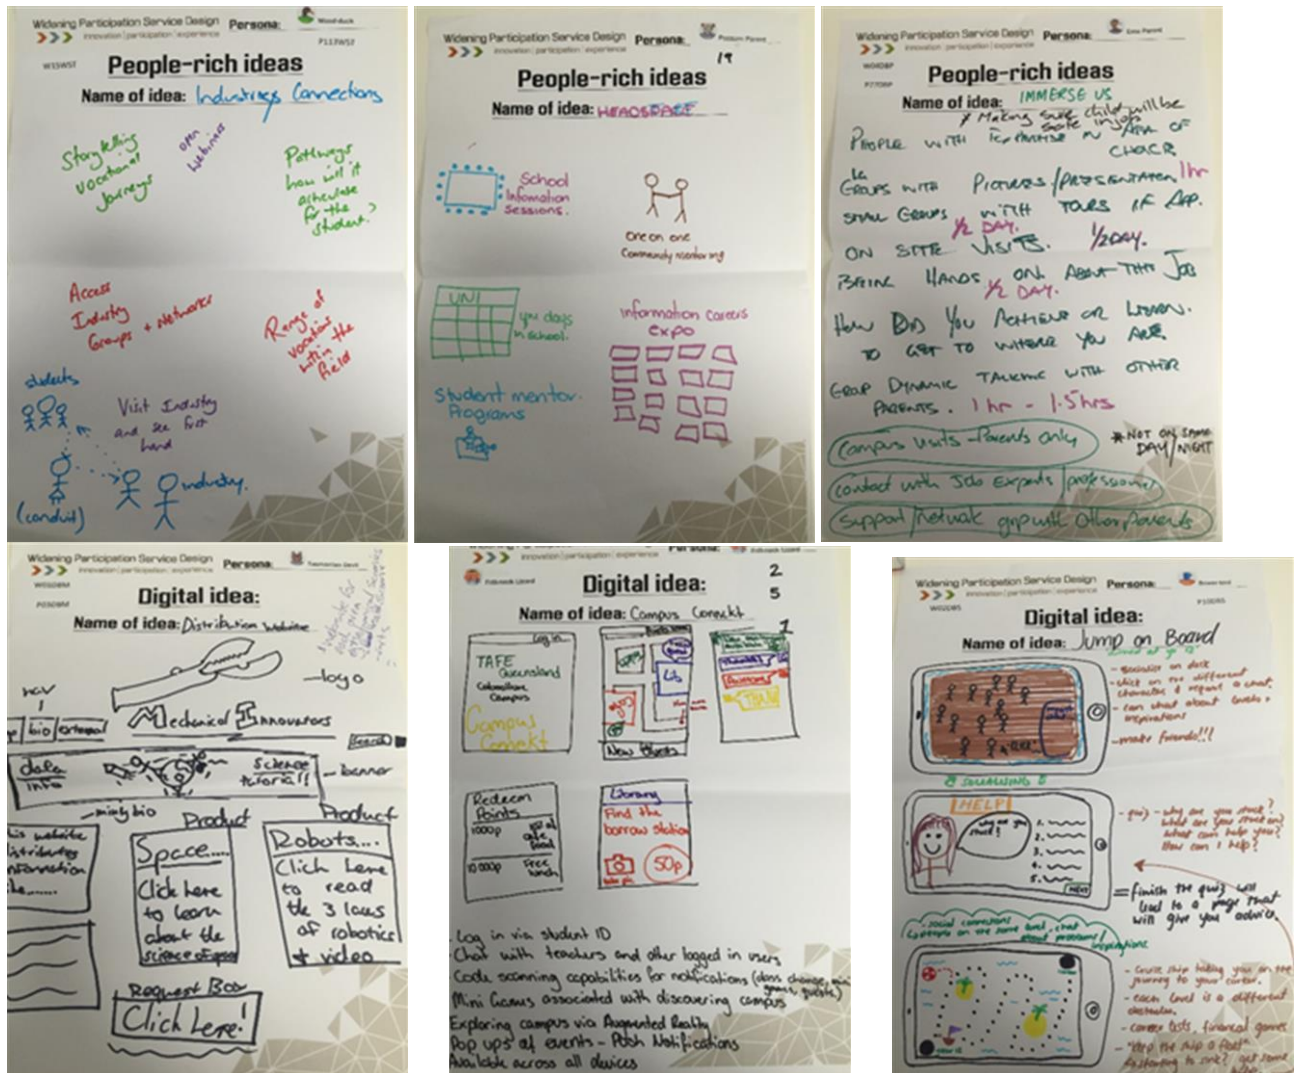 Widening Participation Service Design Persona: Woodduck
innovation | participation | experience
P113WST
W15WST
People-rich ideas
Name of idea: Industrys Connections
Storytelling
vocational
Journeys
open
webinars
Pathways
how will it
articulate
for the
student?
Access
Industry
Groups + Networks
Range of
vocations
within the
field
students
Visit Industry
and see first
hand
industry.
(conduit)
Widening Participation Service Design Persona: Possum Parent
innovation | participation | experience
19
People-rich ideas
Name of idea: HEADSPACE
School
Information
Sessions.
One on one
Community Mentoring
UNI
days
in school.
Information Careers
expo
Student mentor.
Programs
Widening Participation Service Design Persona: Emu Parent
innovation | participation | experience
W04DBP
P77DBP
People-rich ideas
Name of idea: IMMERSE US
* Making sure child will be
safe in job
PEOPLE WITH EXPERTISE IN AREA OF
CHOICE
GROUPS WITH PICTURES/PRESENTATION 1hr
SMALL GROUPS WITH TOURS OF APP.
1/2 DAY.
ON SITE VISITS. 1/2 DAY.
BEING HANDS ON ABOUT THIS JOB
1/2 DAY.
HOW DID YOU ACHIEVE OR LEARN.
TO GET TO WHERE YOU ARE
GROUP DYNAMIC TALKING WITH OTHER
PARENTS. 1hr - 1.5hrs
Campus visits - Parents only
* NOT ON SAME
DAY/NIGHT
Contact with Job Experts/professional
Support/network grp with Other Parents
Widening Participation Service Design Persona: Tasmanian Devil
innovation | participation | experience
Digital idea:
Name of idea: Distribution Website
logo
nav
Mechanical Innovators
bio external
Search
data
info
Science
tutorial!!
banner
mini bio
Product
Product
his website
distributing
information
Space....
Click here
to learn
about the
science of space
Robots...
Click here
to read
the 3 laws
of robotics
+ video
Request Box
Click Here!
Persona:
innovation | participation | experience
Frillneck Lizard
Digital idea:
2
5
Name of idea: Campus Connekt
1
Log in
TAFE
Queensland
Caboolture
Campus
Campus
Connekt
Lib
New Events
Redeem
Points
1000p
10000p
Free
lunch
Library
Find the
borrow station
50p
Log in via student ID
Chat with teachers and other logged in users
Code scanning capabilities for notifications (class change, mini
games, guests)
Mini Games associated with discovering campus
Exploring campus via Augmented Reality
Pop ups of events - Push Notifications
Available across all devices
Widening Participation Service Design Persona:
innovation | participation | experience
W02DBS
P10DBS
Digital idea:
Name of idea: Jump on Board
- socialise on deck
- click on the different
character & request a chat.
- can chat about levels +
inspirations
- make friends!!!
SOCIALISING
HELP
why are you
stuck?
1.
2.
3.
4.
5.
NEXT
- quiz - why are you stuck?
What are you stuck on?
What can help you?
How can I help?
= finish the quiz will
lead to a page that
will give you advice.
social connections
w/ people on the same level, chat
about problems/
inspirations
- Cruise ship taking you on the
journey to your career.
- each level is a different
obstacle.
- career lists, financial games
- "keep the ship a float"